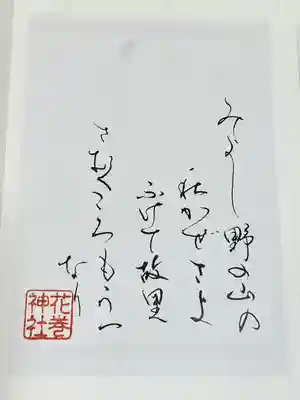 みよし野の山の
秋かぜさよ
ふけて故里
さむくころもうつ
なり
花巻
神社